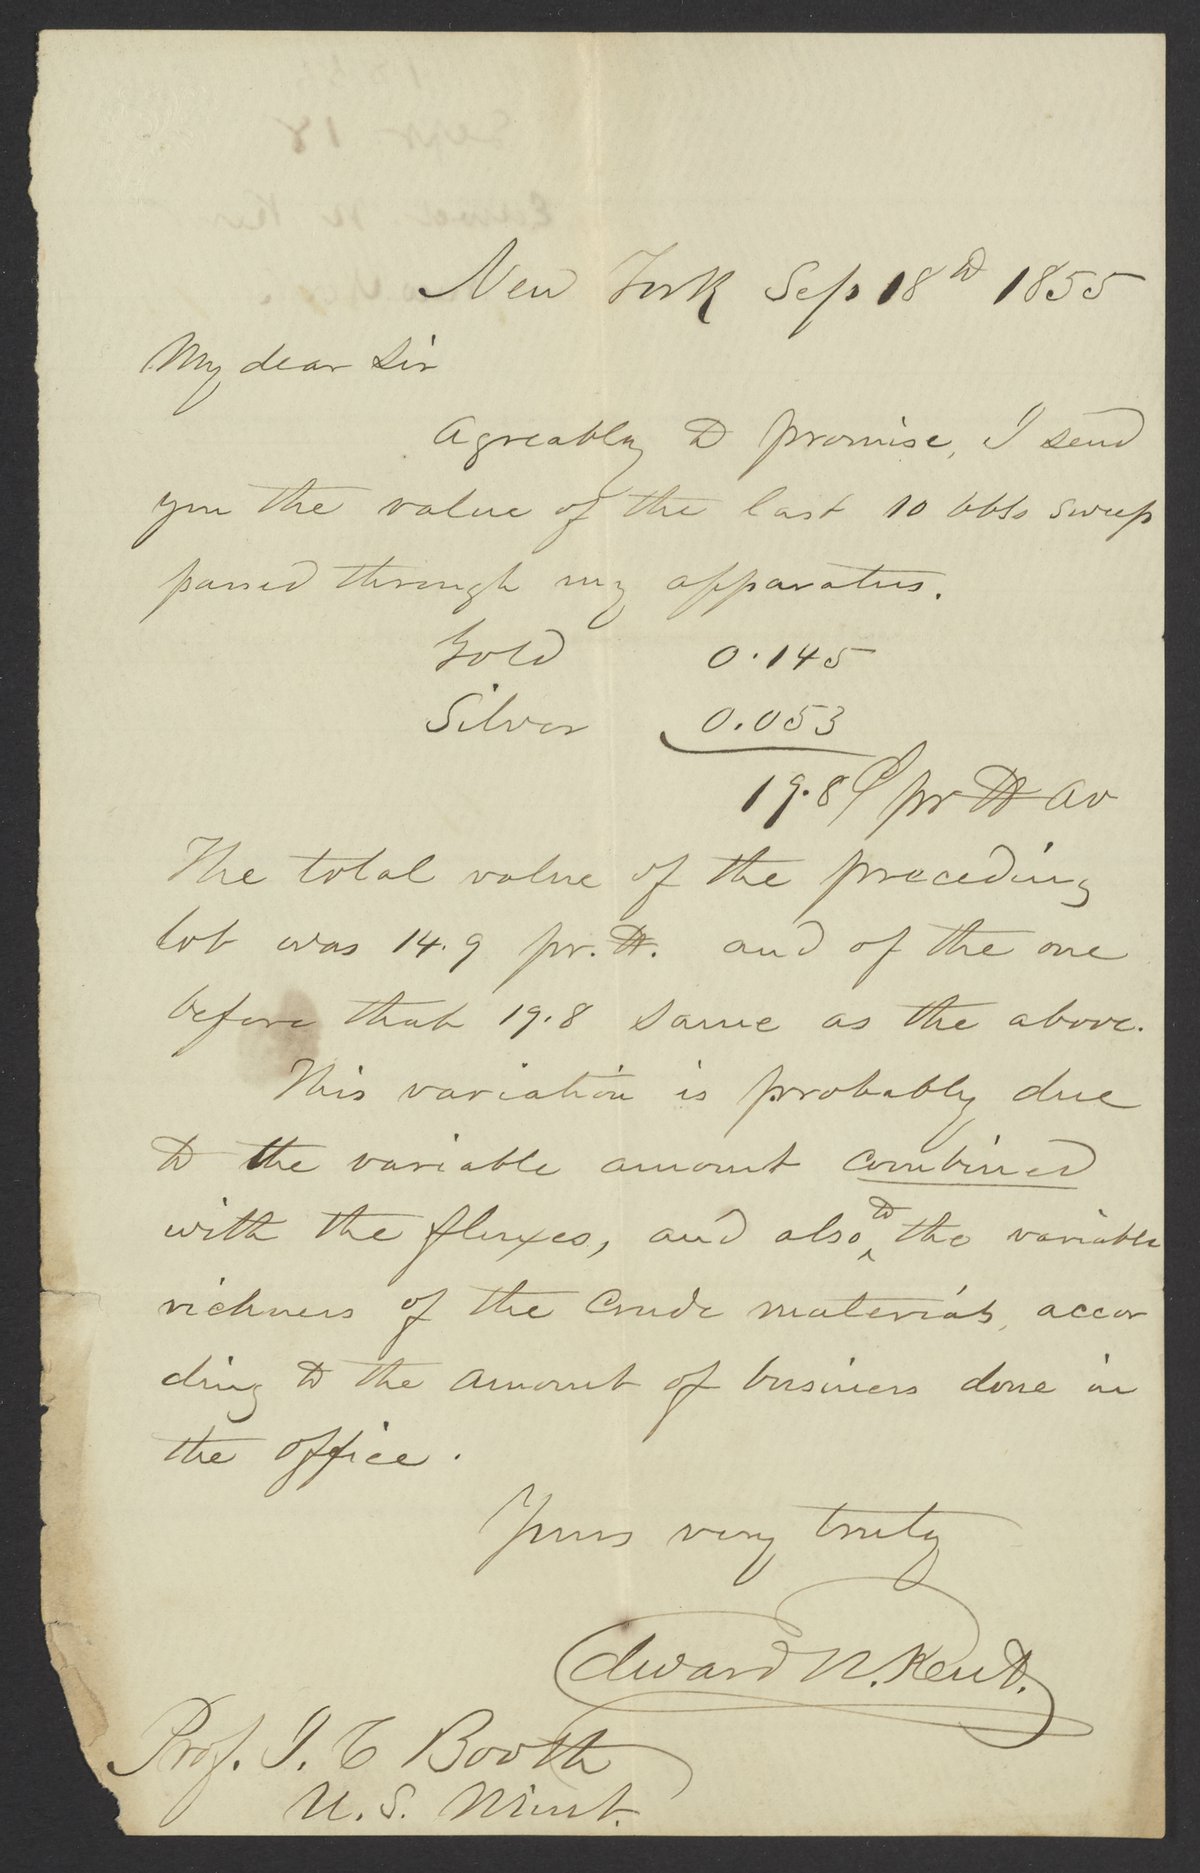 New York Sep 18th 1855
My dear Sir
Agreably to promise, I send
you the value of the last 10 bbls sweep
passed through my apparatus.
Gold 0.145
Silver 0.053
19.8 ¢ pr ℔ av
The total value of the preceding
lot was 14.9 pr. ℔. and of the one
before that 19.8 same as the above.
This variation is probably due
to the variable amount combined
with the fluxes, and also to the variable
richness of the crude materials, accor
ding to the amount of business done in
the office.
Yours very truly
Edward N. Kent.
Prof. J. C Booth
U. S. Mint.